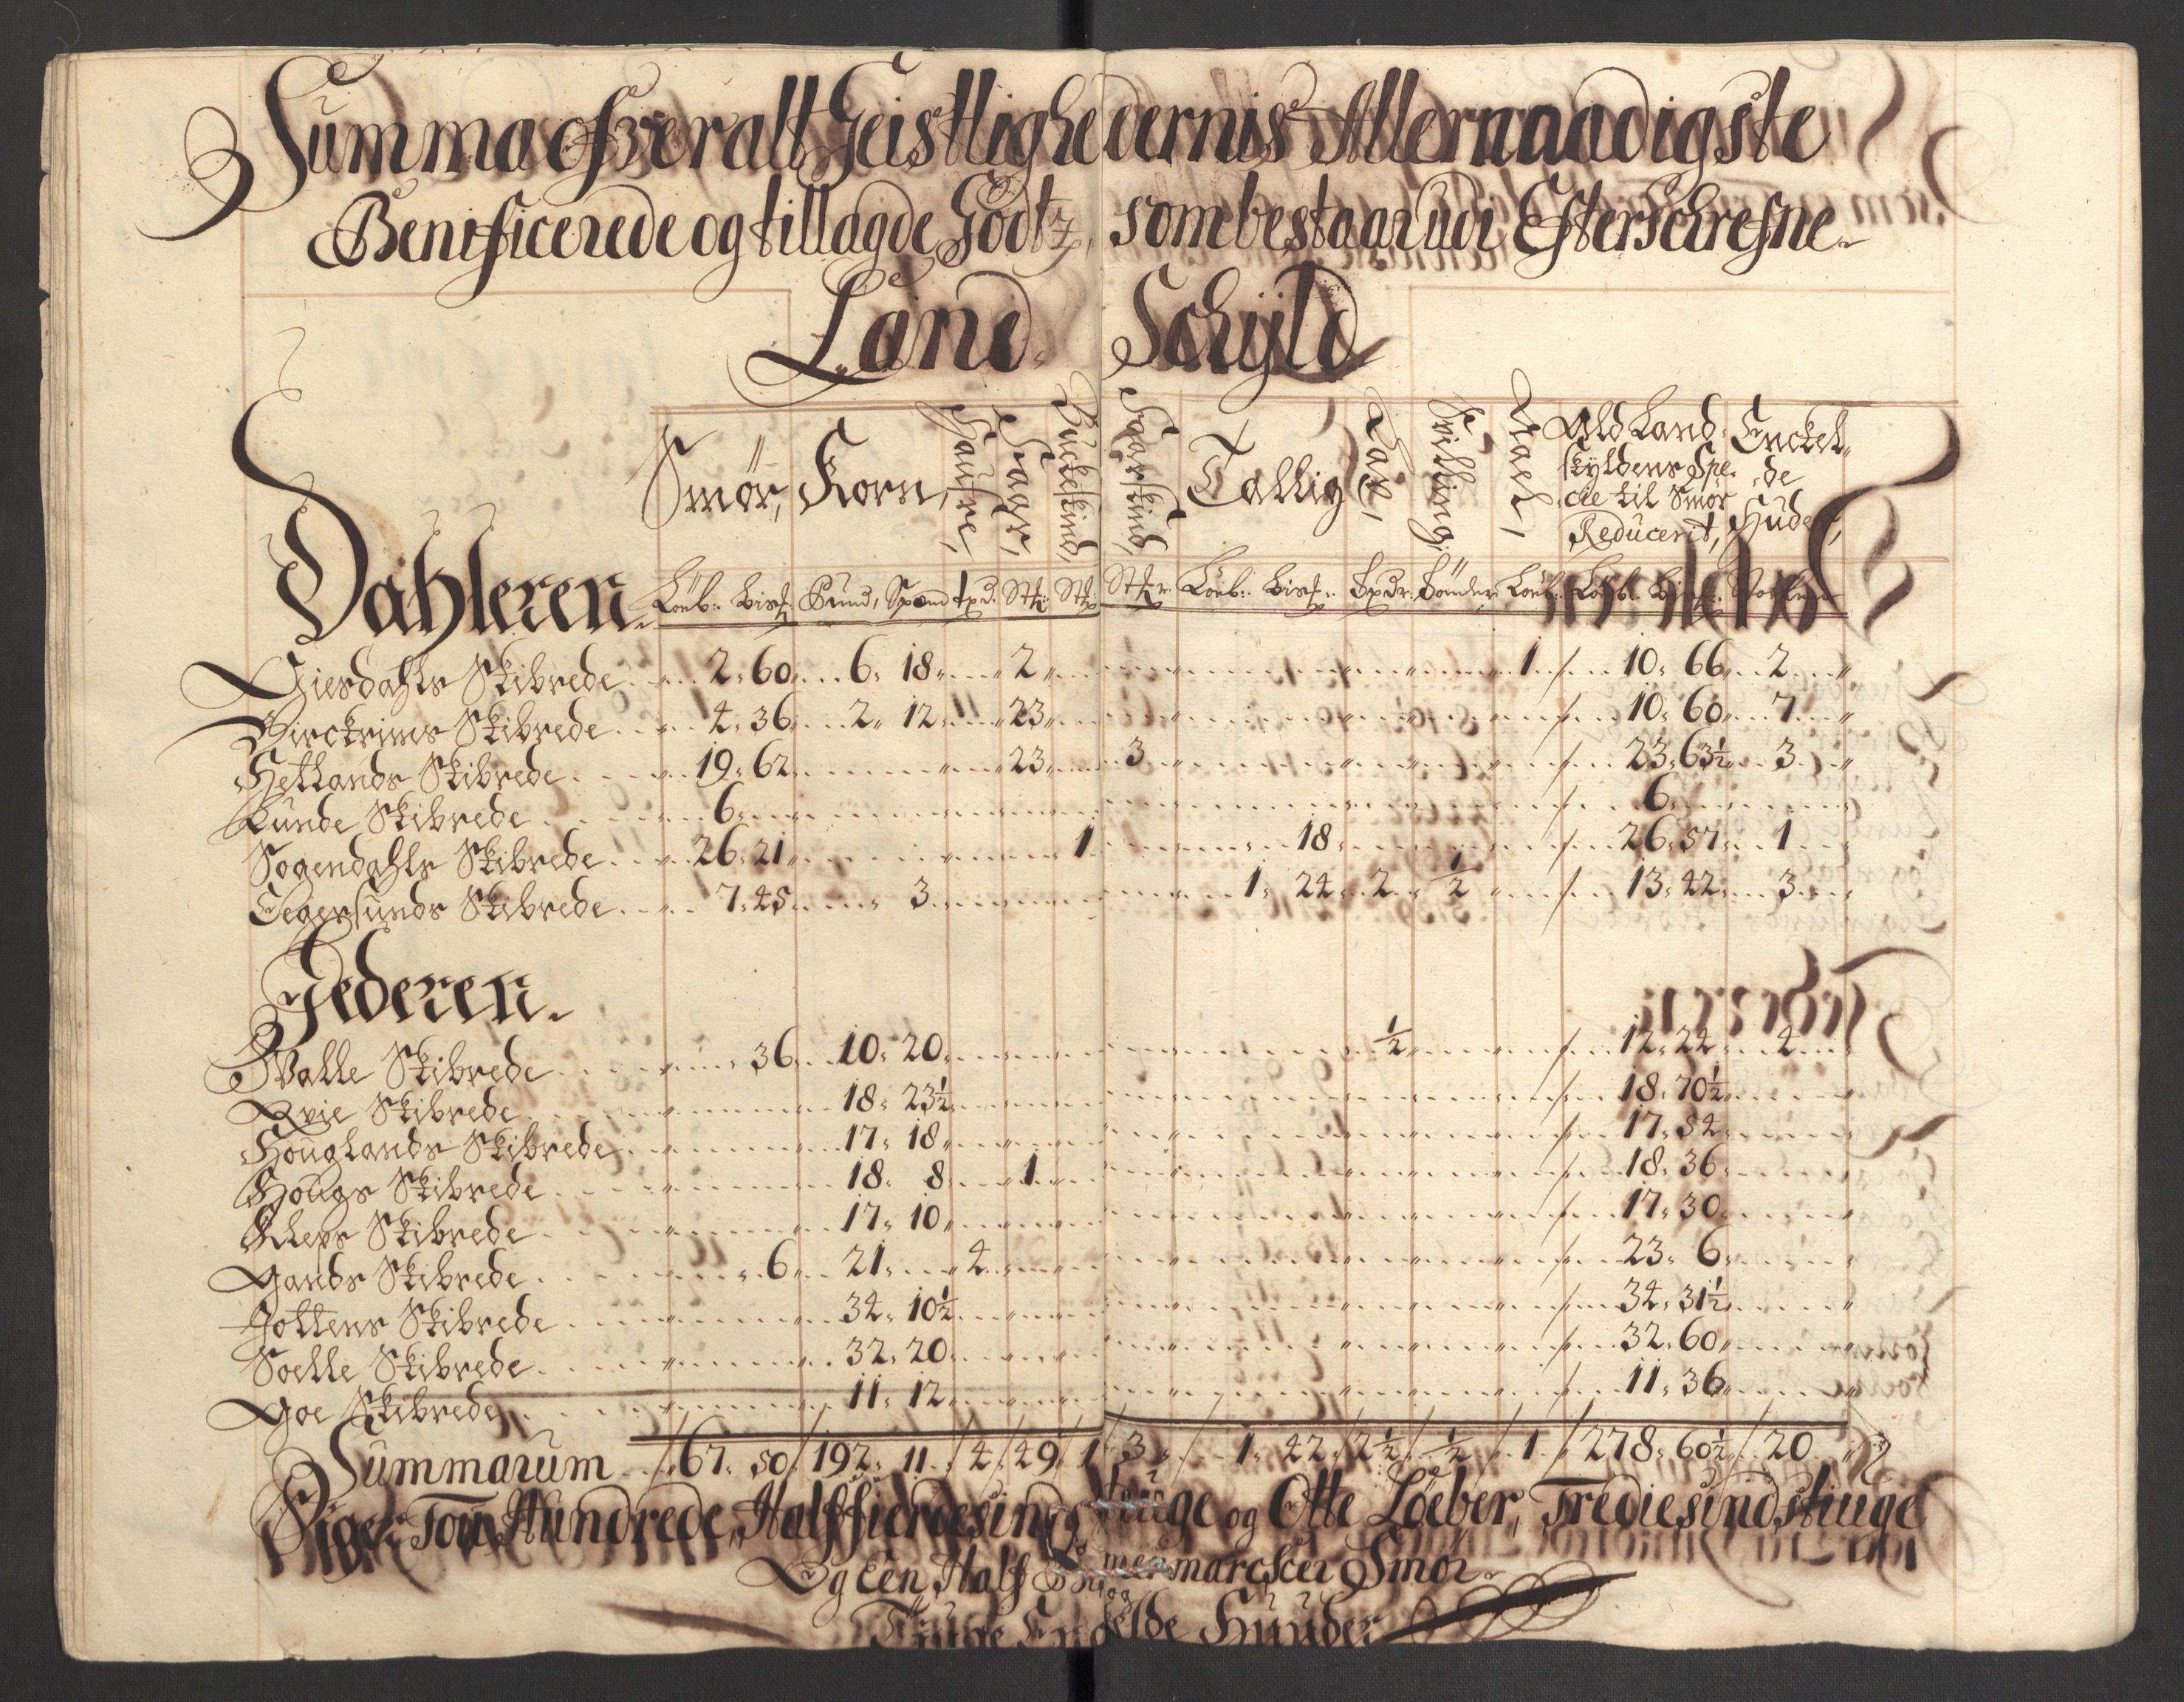 Summa ofver alt Geistlighedernis Allernaadigste
Benificerede og tillagde Godtz, som bestaar udi Efterschrefne
Land Schyld
Smør, Korn, Haufre, Faar, Buckeskind, Faarskind, Tallig Salt, Tvilling, Ald Land Enckel
skyldens Spe- de
cie til Smør Huder,
Reducerit,
Dahleren
Löeb: Bis: Pund, Spand tpd. Stk: Stk: Stk: Löeb: Bis: Tönder Löeb: Löeb:
Giesdahls Skibrede 2 60 6 18 2 1 10 66 2
Birckrims Skibrede 4 36 2 12 23 10 60 7
Hetlands Skibrede 19 62 23 3 23 63½ 3
Lunde Skibrede 6 6
Sogendahls Skibrede 26 21 1 18 26 57 1
Eegersunds Skibrede 7 45 3 1 24 2 ½ 13 42 3
Jederen.
Walle Skibrede 36 10 20 ½ 12 24 4
Qvie Skibrede 18 23½ 18 70½
Houglands Skibrede 17 18 17 54
Hougs Skibrede 18 8 1 18 36
Kleps Skibrede 17 10 17 30
Gands Skibrede 6 21 4 23 6
Jottens Skibrede 34 10½ 34 31½
Soelle Skibrede 32 20 32 60
Goe Skibrede 11 12 11 36
Summarum 67 50 192 11 4 49 1 3 1 42 2½ ½ 1 278 60½ 20
Siger Tou Hundrede, Halffierdesindstiuge og Otte Löeber, Trediesindstiuge
Og Een Half marcker Smör
og
Tiuge Enckelde Huuder